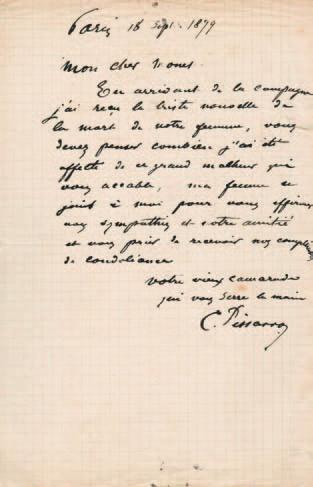 Paris 18 Sept. 1879
Mon cher Monet.
En arrivant de la campagne
j'ai reçu la triste nouvelle de
la mort de votre femme, vous
devez penser combien j'ai été
affecté de ce grand malheur qui
vous accable, ma femme se
joint à moi pour vous affirmer
nos sympathies et notre amitié
et vous prier de recevoir nos compli
de condoléance
votre vieux camarade
qui vous serre la main
C. Pissarro